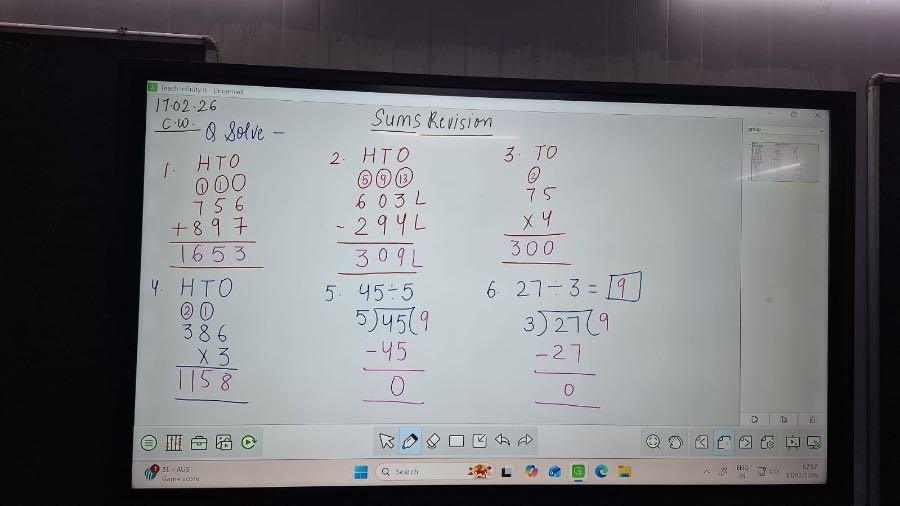 Teach Infinity II - Unnamed
17.02.26
C.W.
Sums Revision
Q Solve -
1. HTO
① ① O
756
+897
1653
2. HTO
⑤ ⑨ ⑬
603L
-294L
309L
3. TO
②
75
x4
300
4. HTO
② ①
386
x3
1158
5. 45÷5
5)45(9
-45
0
6. 27÷3= 9
3)27(9
-27
0
group
SL - AUS
Game score
Search
ENG
IN
07:57
17/02/2026